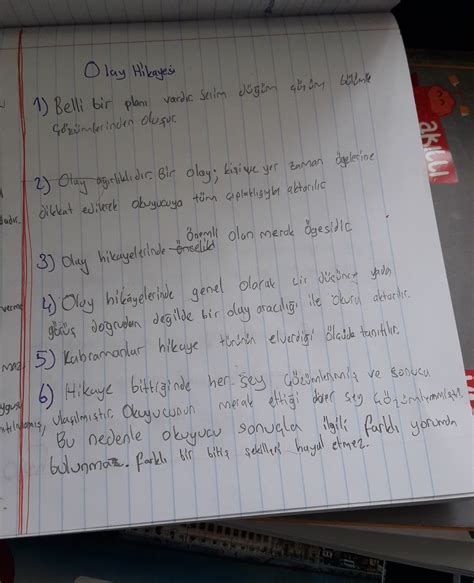 Olay Hikayesi
1) Belli bir planı vardır. Serim düğüm çözüm bölümle
çözümlerinden oluşur
2) Olay ağırlıklıdır. Bir olay; kişi ve yer zaman ögelerine
dikkat edilerek okuyucuya tüm çıplaklığıyla aktarılır
3) Olay hikayelerinde önemli olan merak ögesidir
4) Olay hikayelerinde genel olarak bir düşünce yada
görüş doğrudan değilde bir olay aracılığı ile okura aktarılır.
5) Kahramanlar hikaye türünün elverdiği ölçüde tanıtılır.
6) Hikaye bittiğinde her şey çözümlenmiş ve sonuca
ulaşılmıştır. Okuyucunun merak ettiği diğer şey çözümlenmiştir.
Bu nedenle okuyucu sonuçla ilgili farklı yorumda
bulunmaz. farklı bir bitiş şekilleri hayal etmez.
akıllı